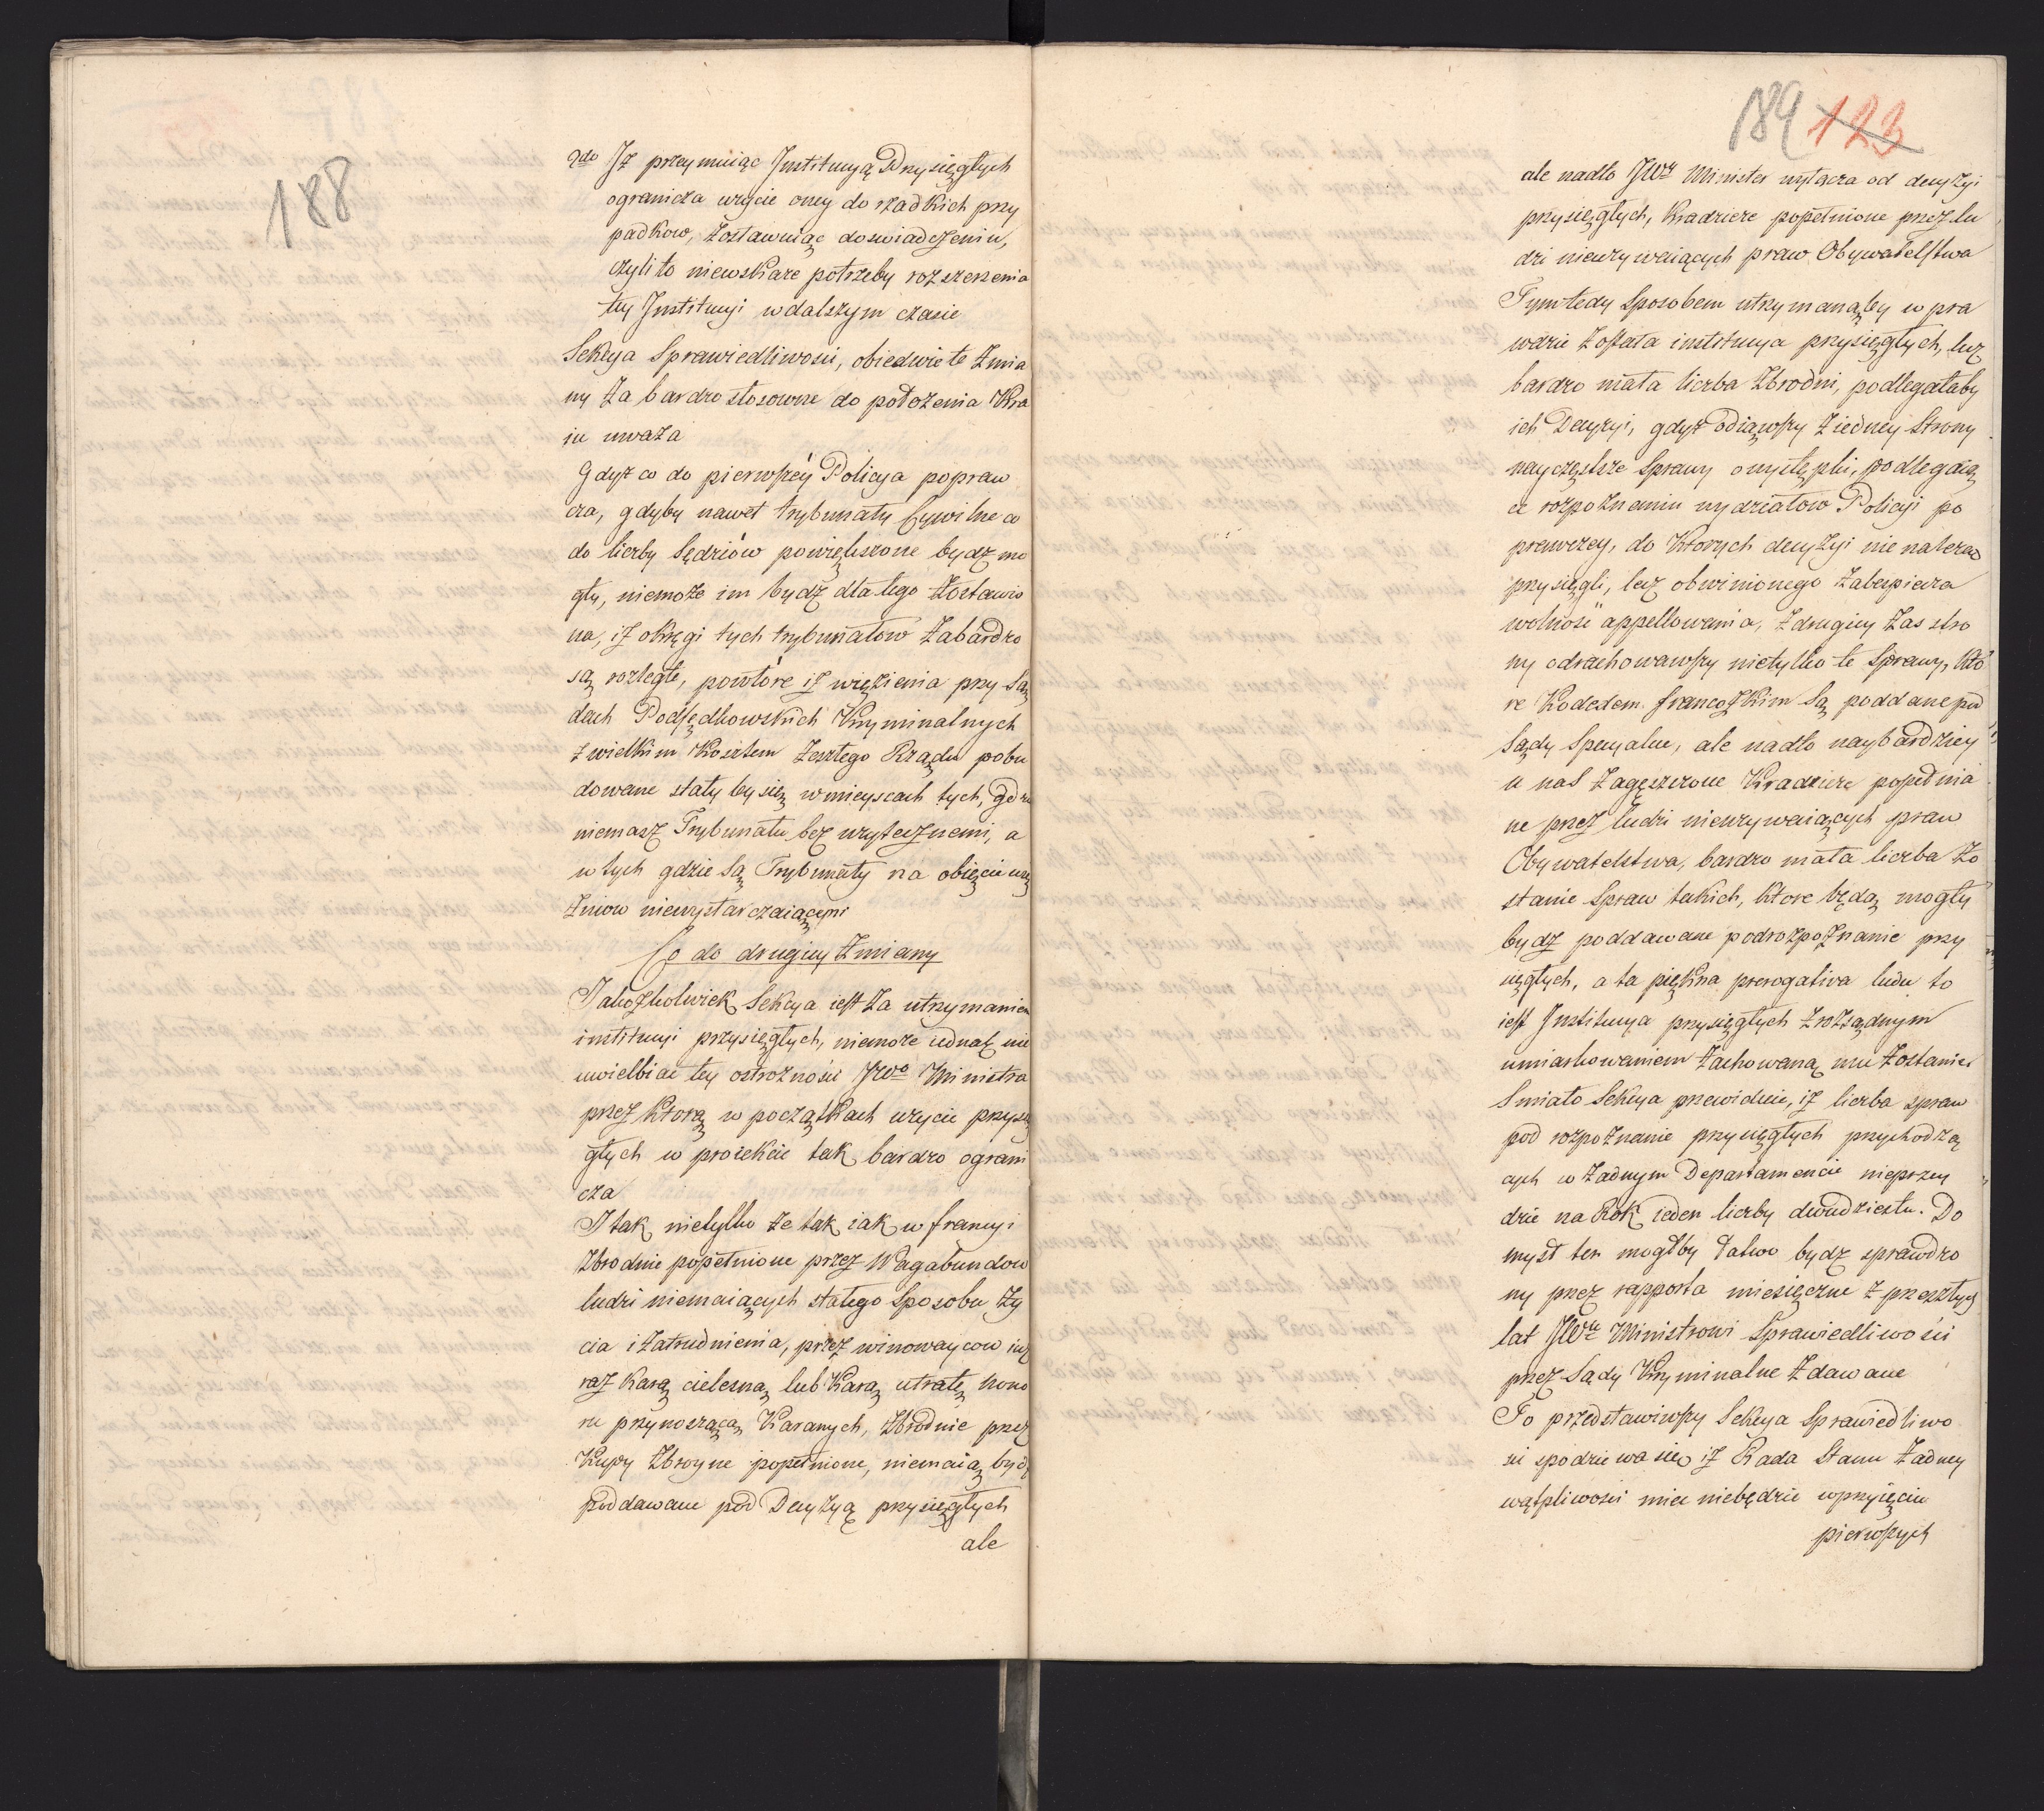 188
2do Iż przeymuiąc Instytucyą Przysięgłych
ogranicza użycie oney do rzadkich przy
padkow, Zostawuiąc doswiadczeniu,
czyli to niewskaże potrzeby rozszerzenia
tey Instytucyi w dalszym czasie
Sekcya Sprawiedliwosci, obiedwie te Zmia
ny Za bardzo stosowne do położenia Kra
iu uważa
Gdyż co do pierwszéy Policya popraw
cza, gdyby nawet trybunały Cywilne co
do liczby Sędziów powiększone bydz mo
gły, niemoże im bydź dla tego Zostawio
na, iż okręgi tych trybunałow Zabardzo
są rozległe, powtóre iż więzienia przy Są
dach Podsędkowskich Kryminalnych
z wielkim Kosztem Zeszłego Rządu pobu
dowane stały by się w mieyscach tych, gdzie
niemasz Trybunału bez użytecznemi, a
w tych gdzie Są Trybunały na obięcie wię
źniow niewystarczaiącymi
Co do drugiey Zmiany
Jakożkolwiek Sekcya iest Za utrzymaniem
instytucyi przysięgłych, niemoże iednak nie
uwielbiać tey ostrożności JWo Ministra
przez Ktorą w początkach użycie przysię
głych w proiekcie tak bardzo ograni
cza
I tak nietylko że tak iak w francyi
Zbrodnie popełnione przez Wagabundow
ludzi niemaiących stałego Sposobu Ży
cia i Zatrudnienia, przez winowaycow iuż
raz Karą cielesną lub Karą utratę hono
ru przynoszącą Karanych, Zbrodnie przez
Kupy Zbroyne popełnione, niemaią bydź
poddawane pod Decyzyą przysięgłych
ale
189 123
ale nadto JWy Minister wyłącza od decyzyi
przysięgłych, Kradzieże popełnione przez lu
dzi nieużywaiących praw Obywatelstwa
Tym tedy Sposobem utrzymanąby w pra
wdzie Zostata instytucya przysięgłych, lecz
bardzo mała liczba Zbrodni, podlegałaby
ich Decyzyi, gdyż odiąwszy Ziedney Strony
nayczęstsze Sprawy o występki, podlegaią
ce rozpoznaniu wydziałow Policyi po
prawczey, do Ktorych decyzyi nie należą
przysięgli, lecz obwinionego Zabespiecza
wolność appellowania, Zdrugiey Zas stro
ny odrachowawszy nietylko te Sprawy, któ
re Kodexem francozkim Są poddane pod
Sądy Specyalne, ale nadto naybardziey
u nas Zagęszczone Kradzieże popełnia
ne przez ludzi nieużywaiących praw
Obywatelstwa, bardzo mała liczba Zo
stanie Spraw takich, ktore będą mogły
bydź poddawane podrozpoznanie przy
sięgłych, a ta piękna prerogativa ludu to
iest Instytucya przysięgłych Z rozsądnym
umiarkowaniem Zachowaną mu Zostanie.
Smiało Sekcya przewiduie, iż liczba spraw
pod rozpoznanie przysięgłych przychodzą
cych w Żadnym Departamencie nieprzey
dzie na Rok ieden liczby dwudziestu. Do
mysł ten mogłby łatwo bydz sprawdzo
ny przez rapporta miesięczne Z przeszłych
lat JWu Ministrowi Sprawiedliwości
przez Sądy Kryminalne Zdawane
To przedstawiwszy Sekcya Sprawiedliwo
sci spodziewa się iż Rada Stanu Żadney
wątpliwosci mieć niebędzie w przyięciu
pierwszych